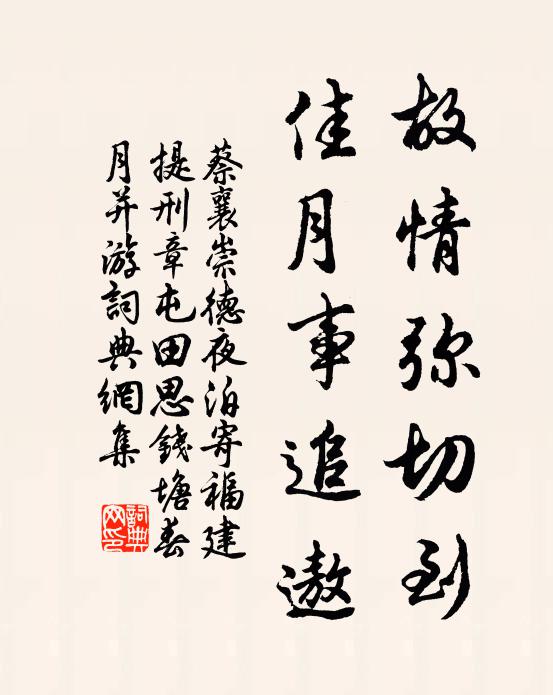 故情弥切到
佳月事追遨
蔡襄崇德夜泊寄福建
提刑章屯田思錢塘春
月并游詞典網集
詞典网印